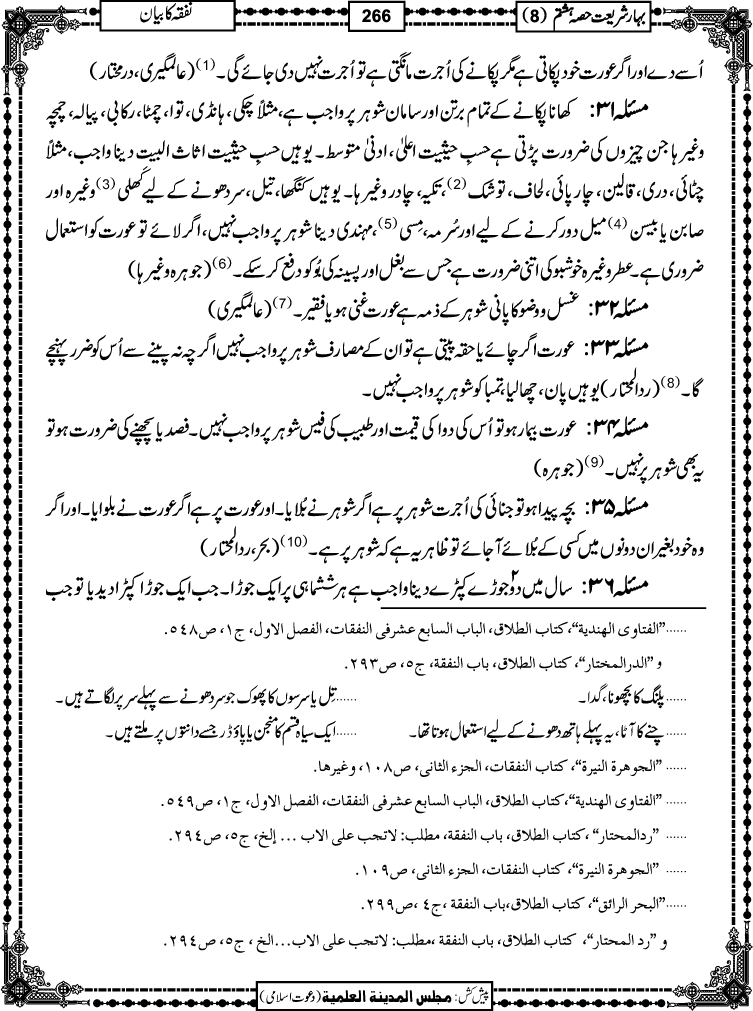 بہارِ شریعت حصہ ہشتم (8)
266
نفقہ کا بیان
اُسے دے اور اگر عورت خود پکاتی ہے مگر پکانے کی اُجرت مانگتی ہے تو اُجرت نہیں دی جائے گی۔(1) (عالمگیری، درمختار)
مسئلہ ۳۱: کھانا پکانے کے تمام برتن اور سامان شوہر پر واجب ہے، مثلاً چکی، ہانڈی، توا، چمٹا، رکابی، پیالہ، چمچہ
وغیرہا جن چیزوں کی ضرورت پڑتی ہے حسبِ حیثیت اعلیٰ، ادنیٰ متوسط۔ یوہیں حسبِ حیثیت اثاث البیت دینا واجب، مثلاً
چٹائی، دری، قالین، چارپائی، لحاف، توشک (2)، تکیہ، چادر وغیرہا۔ یوہیں کنگھا، تیل، سر دھونے کے لیے کھلی (3) وغیرہ اور
صابن یا بیسن (4) میل دور کرنے کے لیے اور سُرمہ، مِسی (5)، مہندی دینا شوہر پر واجب نہیں، اگر لائے تو عورت کو استعمال
ضروری ہے۔ عطر وغیرہ خوشبو کی اتنی ضرورت ہے جس سے بغل اور پسینہ کی بُو کو دفع کر سکے۔ (6) (جوہرہ وغیرہا)
مسئلہ ۳۲: غسل و وضو کا پانی شوہر کے ذمہ ہے عورت غنی ہو یا فقیر۔ (7) (عالمگیری)
مسئلہ ۳۳: عورت اگر چائے یا حقہ پیتی ہے تو ان کے مصارف شوہر پر واجب نہیں اگرچہ نہ پینے سے اُس کو ضرر پہنچے
گا۔ (8) (ردالمحتار) یوہیں پان، چھالیا، تمباکو شوہر پر واجب نہیں۔
مسئلہ ۳۴: عورت بیمار ہو تو اُس کی دوا کی قیمت اور طبیب کی فیس شوہر پر واجب نہیں۔ فصد یا پچھنے کی ضرورت ہو تو
یہ بھی شوہر پر نہیں۔ (9) (جوہرہ)
مسئلہ ۳۵: بچہ پیدا ہو تو جنائی کی اُجرت شوہر پر ہے اگر شوہر نے بُلایا۔ اور عورت پر ہے اگر عورت نے بلوایا۔ اور اگر
وہ خود بغیر ان دونوں میں کسی کے بُلائے آ جائے تو ظاہر یہ ہے کہ شوہر پر ہے۔ (10) (بحر، ردالمحتار)
مسئلہ ۳۶: سال میں دو۲ جوڑے کپڑے دینا واجب ہے ہر ششماہی پر ایک جوڑا۔ جب ایک جوڑا کپڑا دیدیا تو جب
......"الفتاوی الهندية"، کتاب الطلاق، الباب السابع عشر فی النفقات، الفصل الاول، ج۱، ص۵۴۸.
و "الدرالمختار"، کتاب الطلاق، باب النفقة، ج۵، ص۲۹۳.
......پلنگ کا بچھونا، گدا۔ ......تِل یا سرسوں کا پھوک جو سر دھونے سے پہلے سر پر لگاتے ہیں۔
......چنے کا آٹا، یہ پہلے ہاتھ دھونے کے لیے استعمال ہوتا تھا۔ ......ایک سیاہ قسم کا منجن یا پاؤڈر جسے دانتوں پر ملتے ہیں۔
...... "الجوهرة النيرة"، کتاب النفقات، الجزء الثانی، ص۱۰۸، وغیرها.
...... "الفتاوی الهندية"، کتاب الطلاق، الباب السابع عشر فی النفقات، الفصل الاول، ج۱، ص۵۴۹.
...... "ردالمحتار"، کتاب الطلاق، باب النفقة، مطلب: لاتجب علی الاب ... إلخ، ج۵، ص۲۹۴.
...... "الجوهرة النيرة"، کتاب النفقات، الجزء الثانی، ص۱۰۹.
......"البحر الرائق"، کتاب الطلاق، باب النفقة، ج۴، ص۲۹۹.
و "رد المحتار"، کتاب الطلاق، باب النفقة، مطلب: لاتجب علی الاب...الخ، ج۵، ص۲۹۴.
پیش کش: مجلس المدينة العلمية (دعوتِ اسلامی)